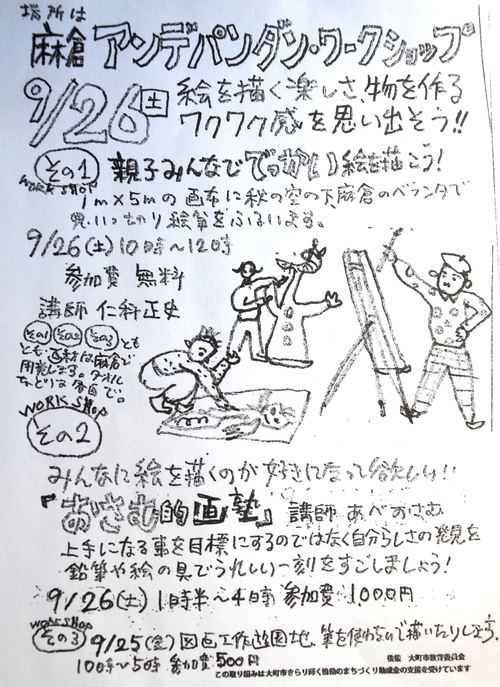 場所は
麻倉 アンデパンダン・ワークショップ
9/26 土 絵を描く楽しさ、物を作る
ワクワク感を思い出そう!!
その1 親子みんなででっかい絵を描こう!
WORK SHOP
1m×5mの画布に秋の空の下麻倉のベランダで
思いっきり絵筆をふるいます。
9/26(土)10時〜12時
参加費 無料
講師 仁科正史
その1 その2 その3 とも
とも画材は麻倉で
用意します。タオル
などは各自で。
WORK SHOP
その2
みんなに絵を描くのが好きになって欲しい!!
『おさむ的画塾』 講師 あべおさむ
上手になる事を目標にするのではなく自分らしさの発見を
鉛筆や絵の具でうれしい一刻をすごしましょう!
9/26(土) 1時半〜4時 参加費 1000円
WORK SHOP
その3 9/25(金) 図画工作遊園地、筆を使わないで描いたりしよう。
10時〜5時 参加費 500円
後援 大町市教育委員会
この取り組みは大町市きらり輝く協働のまちづくり助成金の支援を受けています